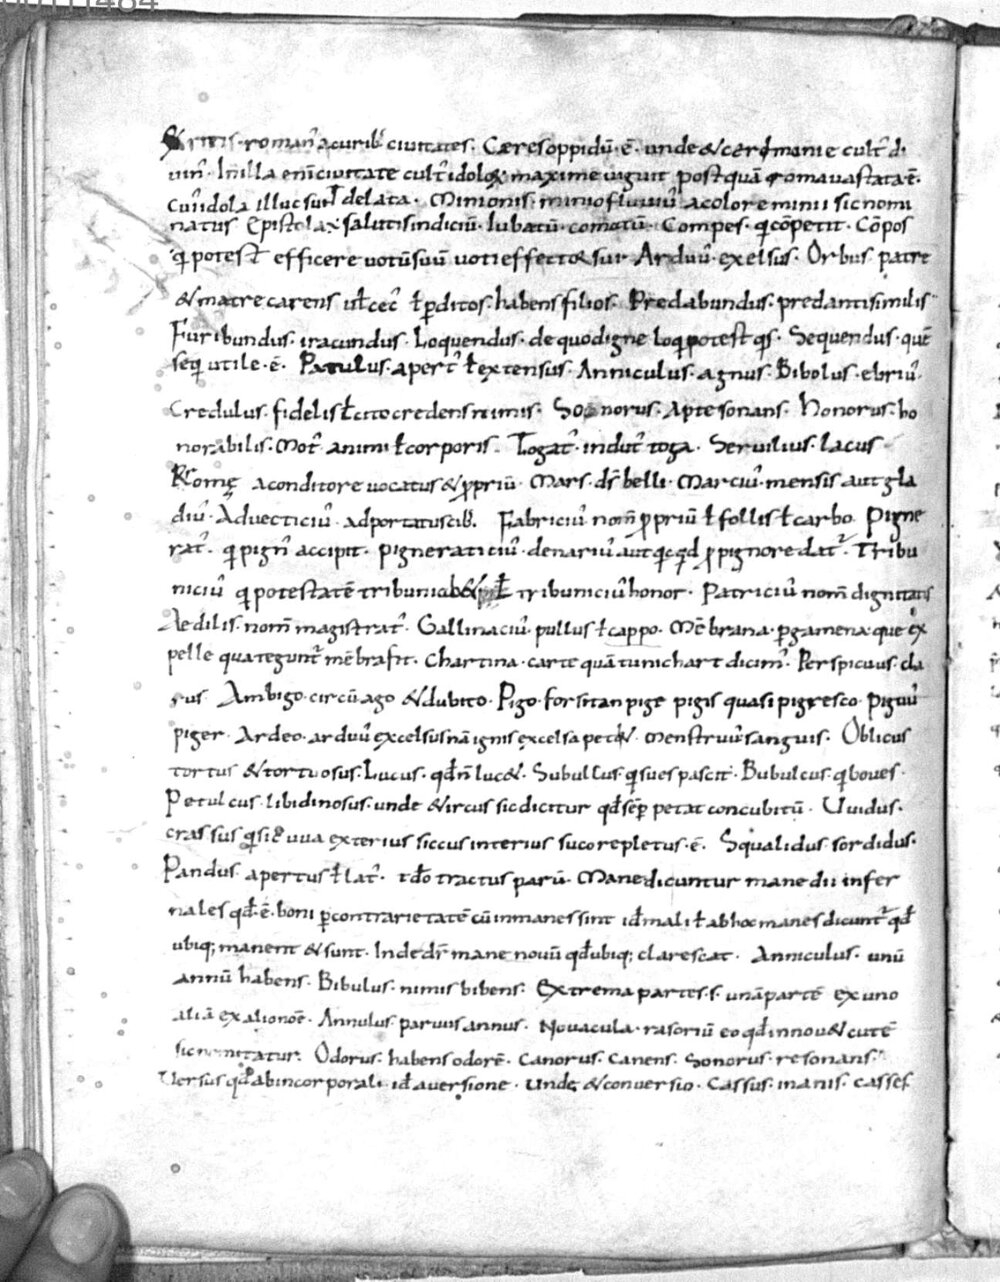 romań a curib; ciuitates. Cæres oppidū ē. unde & cerymonie cult᷒ d
uin᷒. In illa eni ciuitate cult᷒ idoloꝝ maxime uiguit postquā roma uastata ē.
cun᷒ idola illuc sunt delata. Minionis. minio fluuiu᷒ a colore minii sic nomi
natus Epistola salutis indiciū. Iubatū. comatū. Compes. qi cōpetit. Cōpos
qi potest efficere uotū suū uoti effectꝰ sui. Arduu᷒. exelsus. Orbus. patre
& matre carens ul cec᷒ ł pditos. habens filios. Predabundus. predanti similis
Furibundus. iracundus. Loquendus. de quo digne loqi potest qs. Sequendus. quē
seqi utile. ē. Patulus. apert᷒ ł extensus. Anniculus. agnus. Bibolus. ebriu᷒.
Credulus. fidelis ł cito credens nimis. Sonorus. Apte sonans. Honorus. ho
norabilis. Mot᷒ animi ł corporis. Togat᷒. indut᷒ toga. Seruilius. lacus
Romę a conditore uocatus & ꝓpriū. Mars. ds belli. Marciu᷒. mensis aut gla
diu᷒. Aduecticiu᷒. adportatus cib᷒. Fabriciu᷒ nom̄ ꝓpriū ł follis ł carbo. Pigne
rat᷒. qi pign᷒ accipit. pigneraticiu᷒. denariu᷒ aut qicqd ꝓ pignore dat᷒. Tribu
niciu᷒ qi potestatē tribunicā hab& tribuniciu᷒ honor. Patriciu᷒ nom̄ dignitatis
Aedilis. nom̄ magistrat᷒. Gallinaciu᷒. pullus ł cappo. Mēbrana. pgamena. que ex
pelle qua tegunt᷒ mēbra fit. Chartina. carte quā tuni chart dicim᷒. Perspicuus. cla
rus. Ambigo. circū ago & dubito. Pigo. forsitan pige pigis quasi pigresco. Piguu᷒
piger. Ardeo. arduu᷒ excelsus nā ignis excelsa pet&. Menstruu᷒ sanguis. Oblicus
tortus & tortuosus. Lucus. qd n̄ luc&. Subulcus. qi sues pascit. Bubulcus. qi boues.
Petulcus. libidinosus. unde & ircus sic dicitur qd sēp petat concubitū. Uuidus.
crassus qi sic uua exterius siccus interius suco repletus. ē. Squalidus. sordidus.
Pandus. apertus ł lat᷒. tdo tractus parū. Mane dicuntur mane dii infer
nales qd. ē. boni p contrarietatē cū inmanes sint id mali ł ab hoc manes dicunt᷒ qd
ubiq; manent & sunt. Inde dr mane nouū qd ubiq; clarescat. Anniculus. unū
annū habens. Bibulus. nimis bibens. Extrema partes. s. unā partē ex uno
aliā ex alio noē. Annulus. paruus annus. Nouacula. rasoriū eo qd innou& cutē
sic Odorus. habens odorē. Canorus. Canens. Sonorus. resonans.
Uersus qd ab incorporali. id auersione. unde & conuersio. Cassus. inanis. casses